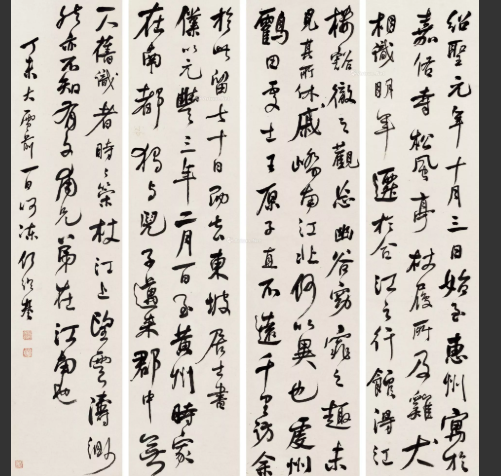 紹聖元年十月三日始至惠州寓於
嘉祐寺松風亭杖履所及雞犬
相識明年遷於合江之行館得江
樓豁徹之觀忘幽谷窈窕之趣未
見其所休戚嶠南江北何以異也虔州
鶴田處士王原子直不遠千里訪余
於此留七十日而去東坡居士書
僕以元豐三年二月一日至黃州時家
在南都獨與兒子邁來郡中無
一人舊識者時〻策杖江上望雲濤渺
然亦不知有文甫兄弟在江南也
丁未大雪前一日呵凍何紹基